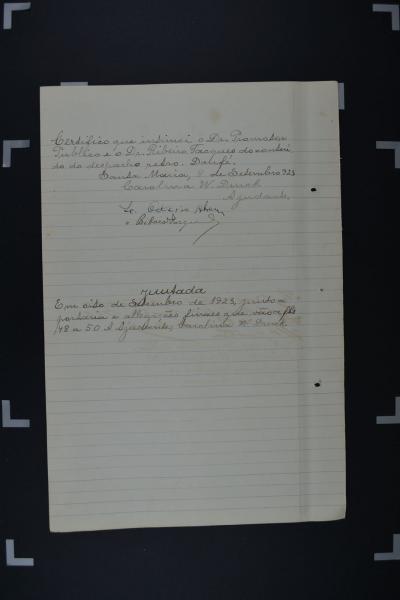 Certifico que intimei o Dr. Promotor
Publico e o Dr. Ribeiro Tacques do conteú
do do despacho retro. Dou fé.
Santa Maria, 8 de Setembro 923
Carolina W. Druck
Ajudante.
Juntada
Em oito de Setembro de 1923, junto a
portaria e allegações finaes que vão a fls
48 a 50. A Ajudante, Carolina W. Druck